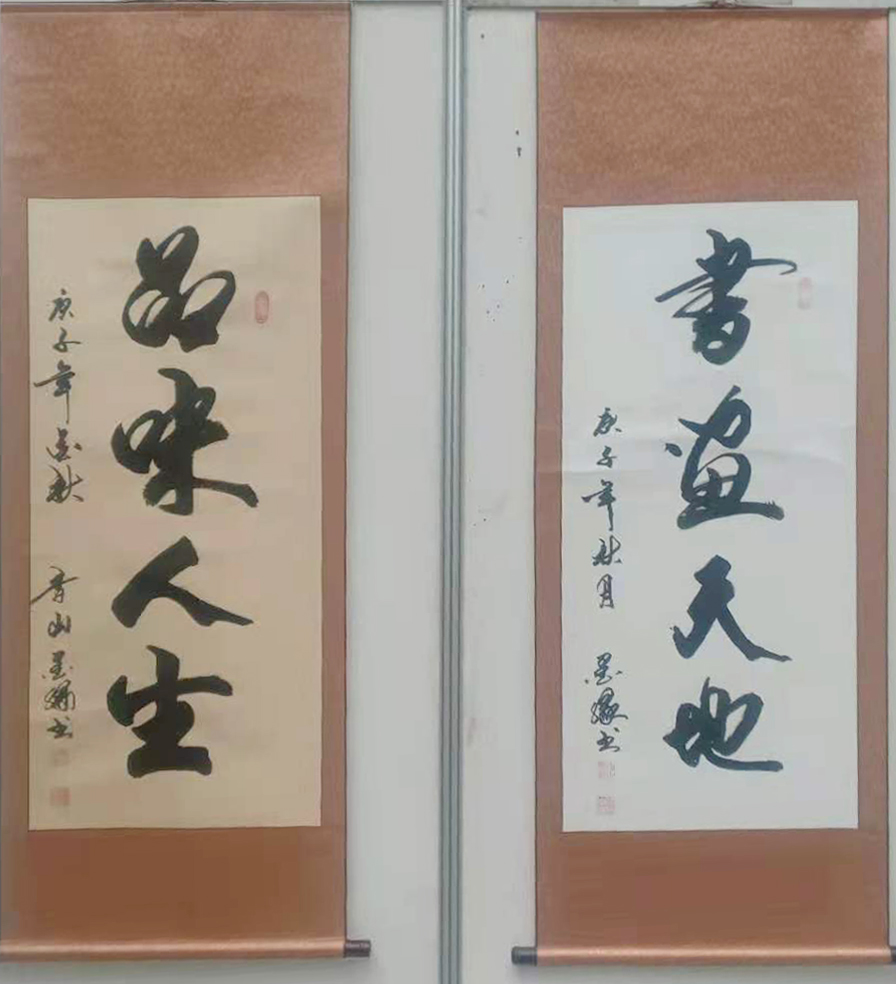 品味人生
庚子年金秋
香山墨缘书
書画天地
庚子年秋月
墨缘书